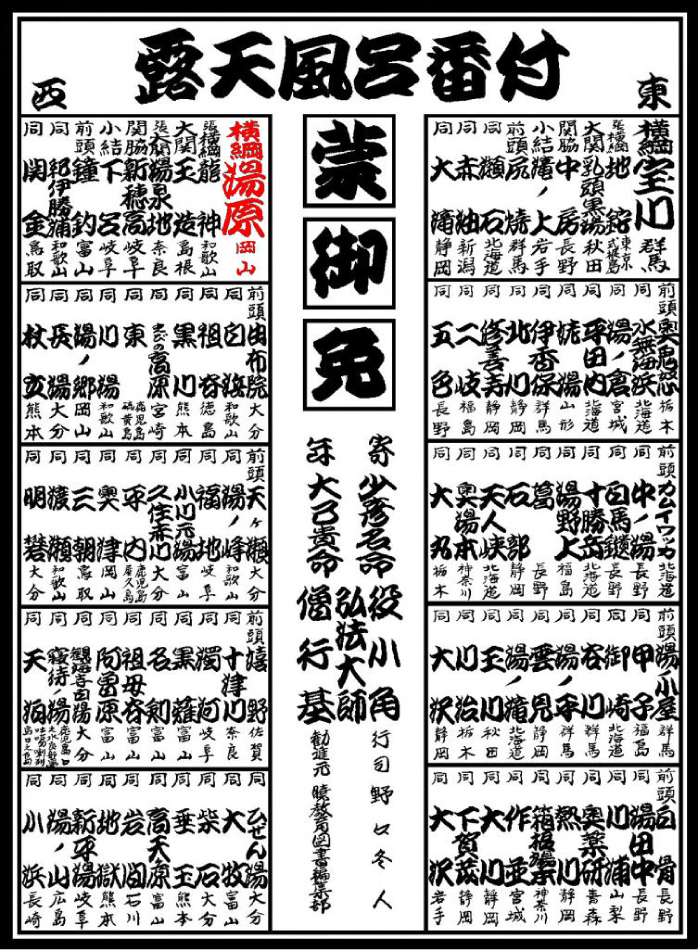 露天風呂番付
東
西
横綱 宝川 群馬
張横綱 地鉈 東京式根島
大関 乳頭黒湯 秋田
関脇 中房 長野
小結 滝ノ上 岩手
前頭 尻焼 群馬
同 瀬石 北海道
同 赤湯 新潟
同 大滝 静岡
前頭 奥鬼怒 栃木
同 水無海浜 北海道
同 湯ノ倉 宮城
同 平田内 北海道
同 姥湯 山形
同 伊香保 群馬
同 北川 静岡
同 修善寺 静岡
同 二岐 福島
同 五色 長野
前頭 カムイワッカ 北海道
同 中ノ湯 長野
同 白馬鑓 長野
同 十勝岳 北海道
同 湯野上 福島
同 葛 長野
同 石部 静岡
同 天人峡 北海道
同 奥湯本 神奈川
同 大丸 栃木
前頭 湯ノ小屋 群馬
同 甲子 福島
同 御崎 北海道
同 谷川 群馬
同 湯ノ平 群馬
同 雲見 静岡
同 湯ノ滝 秋田
同 玉川 秋田
同 川治 栃木
同 大沢 静岡
前頭 白骨 長野
同 湯田中 長野
同 川浦 山梨
同 奥薬研 青森
同 熱川 静岡
同 箱根湯本 神奈川
同 作並 宮城
同 大川 静岡
同 下賀茂 静岡
同 大沢 岩手
蒙御免
寄 少彦名命 役小角 行司 野口冬人
年 大己貴命 弘法大師
僧行基 勧進元
横綱 湯原 岡山
張横綱 龍神 和歌山
大関 玉造 島根
張大関 湯泉地 奈良
関脇 新穂高 岐阜
小結 下呂 岐阜
前頭 鐘釣 富山
同 那伊勝浦 和歌山
同 関金 鳥取
前頭 由布院 大分
同 白浜 和歌山
同 祖谷 徳島
同 黒川 熊本
同 えびの高原 宮崎
同 東 鹿児島硫黄島
同 川湯 和歌山
同 湯ノ郷 岡山
同 長湯 大分
同 杖立 熊本
前頭 天ヶ瀬 大分
同 湯ノ峰 和歌山
同 福地 岐阜
同 小川元湯 富山
同 久住赤川 大分
同 平内 鹿児島屋久島
同 奥津 岡山
同 三朝 鳥取
同 渡瀬 和歌山
同 明礬 大分
前頭 嬉野 佐賀
同 十津川 奈良
同 濁河 岐阜
同 黒薙 富山
同 名剣 富山
同 祖母谷 富山
同 阿曽原 富山
同 観海寺田湯 大分
同 寝待ノ湯
同 天泊
同 ひぜん湯 大分
同 大牧 富山
同 柴石 大分
同 垂玉 熊本
同 高天原 富山
同 岩間 石川
同 地獄 熊本
同 新平湯 岐阜
同 湯ノ山 広島
同 小浜 長崎